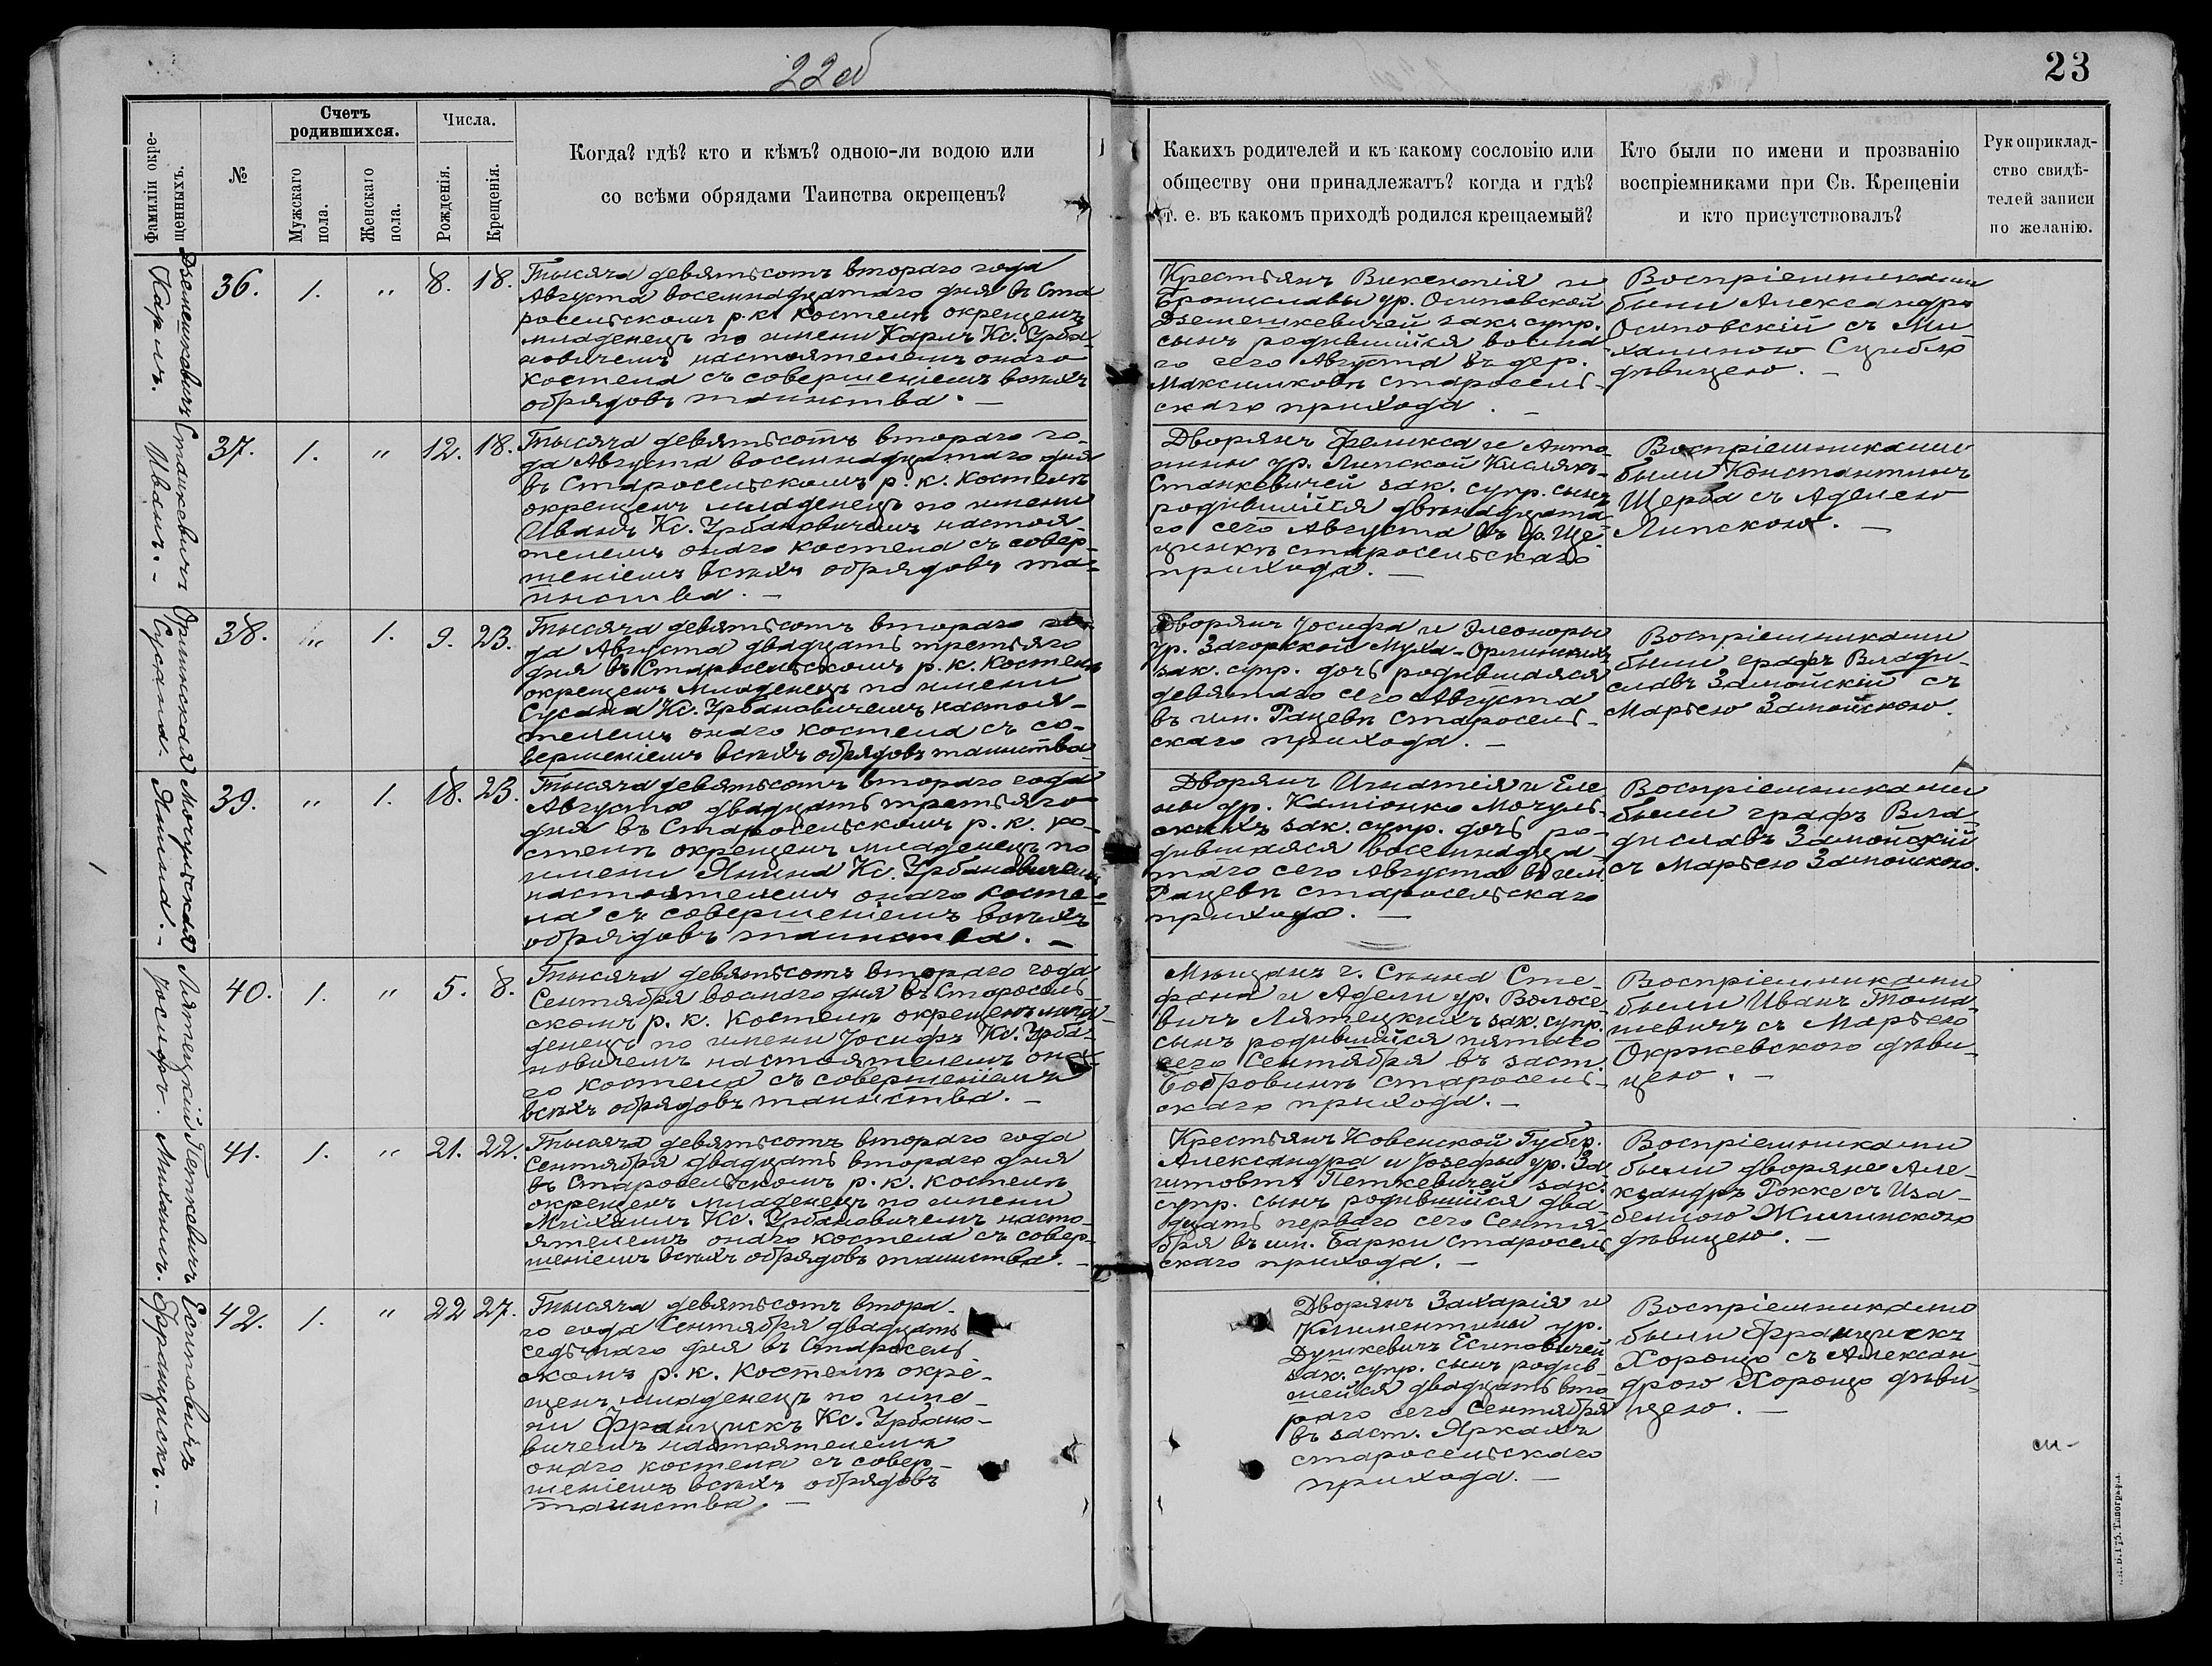 22об
23
Фамиліи окре-
щенныхъ.
№
Счетъ
родившихся.
Мужскаго
пола.
Женскаго
пола.
Числа.
Рожденія.
Крещенія.
Когда? гдѣ? кто и кѣмъ? одною-ли водою или
со всѣми обрядами Таинства окрещенъ?
Какихъ родителей и къ какому сословію или
обществу они принадлежатъ? когда и гдѣ?
т. е. въ какомъ приходѣ родился крещаемый?
Кто были по имени и прозванію
воспріемниками при Св. Крещеніи
и кто присутствовалъ?
Рукоприклад-
ство свидѣ-
телей записи
по желанію.
Дземешкевичъ
Карлъ.
36.
1.
"
8.
18.
Тысяча девятьсотъ втораго года
Августа восемнадцатаго дня въ Ста
росельскомъ р. к. костелѣ окрещенъ
младенецъ по имени Карлъ Кс. Урба-
новичемъ настоятелемъ онаго
костела съ совершеніемъ всѣхъ
обрядовъ таинства. —
Крестьянъ Викентія и
Брониславы ур. Осиповской
Дземешкевичей зак. супр.
сынъ родившійся восьма
го сего Августа въ дер.
Максимковѣ старосель-
скаго прихода. —
Воспріемниками
были Александръ
Осиповскій съ Ми
халиною Сцибло
дѣвицею. —
Станкевичъ
Иванъ. —
37.
1.
"
12.
18.
Тысяча девятьсотъ втораго го-
да Августа восемнадцатаго дня
въ Старосельскомъ р. к. костелѣ
окрещенъ младенецъ по имени
Иванъ Кс. Урбановичемъ настоя-
телемъ онаго костела съ совер-
шеніемъ всѣхъ обрядовъ та-
инства. —
Дворянъ Феликса и Анто-
нины ур. Липской Кислякъ-
Станкевичей зак. супр. сынъ
родившійся двѣнадцата-
го сего Августа въ ф. Ще-
цинкѣ старосельскаго
прихода. —
Воспріемниками
были Константинъ
Щерба съ Аделею
Липскою. —
Орлинская
Сусана.
38.
"
1.
9.
23.
Тысяча девятьсотъ втораго го-
да Августа двадцать третьяго
дня въ Старосельскомъ р. к. костелѣ
окрещенъ младенецъ по имени
Сусана Кс. Урбановичемъ настоя-
телемъ онаго костела съ со-
вершеніемъ всѣхъ обрядовъ таинства
Дворянъ Іосифа и Элеоноры
ур. Загорской Муха-Орлинскихъ
зак. супр. дочь родившаяся
девятаго сего Августа
въ им. Рацевѣ старосель-
скаго прихода. —
Воспріемниками
были графъ Влади-
славъ Замойскій съ
Марьею Замойскою.
Мочульская
Янина. —
39.
"
1.
18.
23.
Тысяча девятьсотъ втораго года
Августа двадцать третьяго
дня въ Старосельскомъ р. к. ко-
стелѣ окрещенъ младенецъ по
имени Янина Кс. Урбановичемъ
настоятелемъ онаго косте-
ла съ совершеніемъ всѣхъ
обрядовъ таинства. —
Дворянъ Игнатія и Еле
ны ур. Каміонко Мочуль-
скихъ зак. супр. дочь ро-
дившаяся восемнадца-
таго сего Августа въ им.
Рацевѣ старосельскаго
прихода. —
Воспріемниками
были графъ Вла-
диславъ Замойскій
съ Марьею Замойскою.
Лятецкій
Іосифъ.
40.
1.
"
5.
8.
Тысяча девятьсотъ втораго года
Сентября восьмаго дня въ Старосель-
скомъ р. к. костелѣ окрещенъ мла-
денецъ по имени Іосифъ Кс. Урба-
новичемъ настоятелемъ она-
го костела съ совершеніемъ
всѣхъ обрядовъ таинства. —
Мѣщанъ г. Сѣнна Сте-
фана и Адели ур. Волосе-
вичъ Лятецкихъ зак. супр.
сынъ родившійся пятаго
сего Сентября въ заст.
Бобровинѣ старосель-
скаго прихода. —
Воспріемниками
были Иванъ Тома-
шевичъ съ Марьею
Окржевскою дѣви-
цею. —
Петкевичъ
Михаилъ.
41.
1.
"
21.
22.
Тысяча девятьсотъ втораго года
Сентября двадцать втораго дня
въ Старосельскомъ р. к. костелѣ
окрещенъ младенецъ по имени
Михаилъ Кс. Урбановичемъ насто-
ятелемъ онаго костела съ совер-
шеніемъ всѣхъ обрядовъ таинства. —
Крестьянъ Ковенской Губер.
Александра и Іозефы ур.
Петкевичей зак.
супр. сынъ родившійся два-
дцать перваго сего Сентя-
бря въ им. Барки старосель-
скаго прихода. —
Воспріемниками
были дворяне Але-
ксандръ Рокке съ Иза-
беллою Жилинскою
дѣвицею. —
Есиповичъ
Францискъ. —
42.
1.
"
22
27.
Тысяча девятьсотъ втора-
го года Сентября двадцать
седьмаго дня въ Старосель
скомъ р. к. костелѣ окре-
щенъ младенецъ по име-
ни Францискъ Кс. Урбано-
вичемъ настоятелемъ
онаго костела съ совер-
шеніемъ всѣхъ обрядовъ
таинства. —
Дворянъ Захарія и
Климентины ур.
Душкевичъ Есиповичей
зак. супр. сынъ родив-
шейся двадцать вто
раго сего Сентября
въ заст. Яркахъ
старосельскаго
прихода. —
Воспріемниками
были Францискъ
Хорощо съ Алексан-
дрою Хорощо дѣви-
цею. —